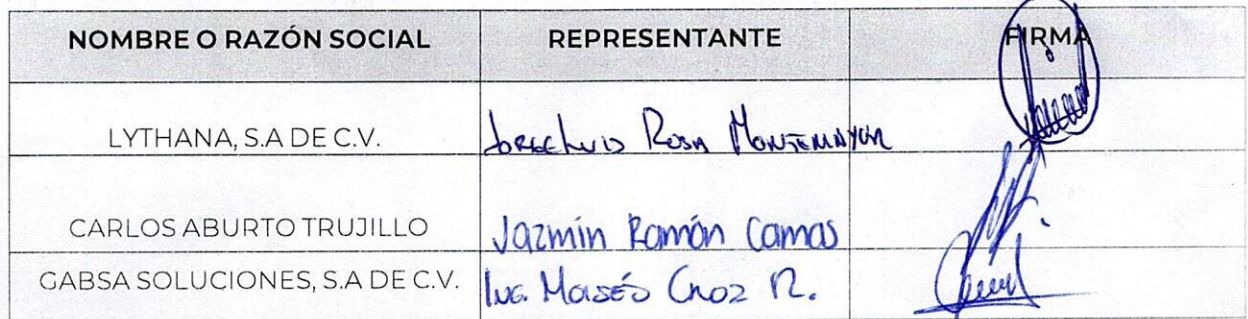 NOMBRE O RAZÓN SOCIAL REPRESENTANTE FIRMA
LYTHANA, S.A DE C.V. Jorge Luis Rosa Montemayor
CARLOS ABURTO TRUJILLO Jazmín Ramón Camas
GABSA SOLUCIONES, S.A DE C.V. Ing. Moisés Cruz R.